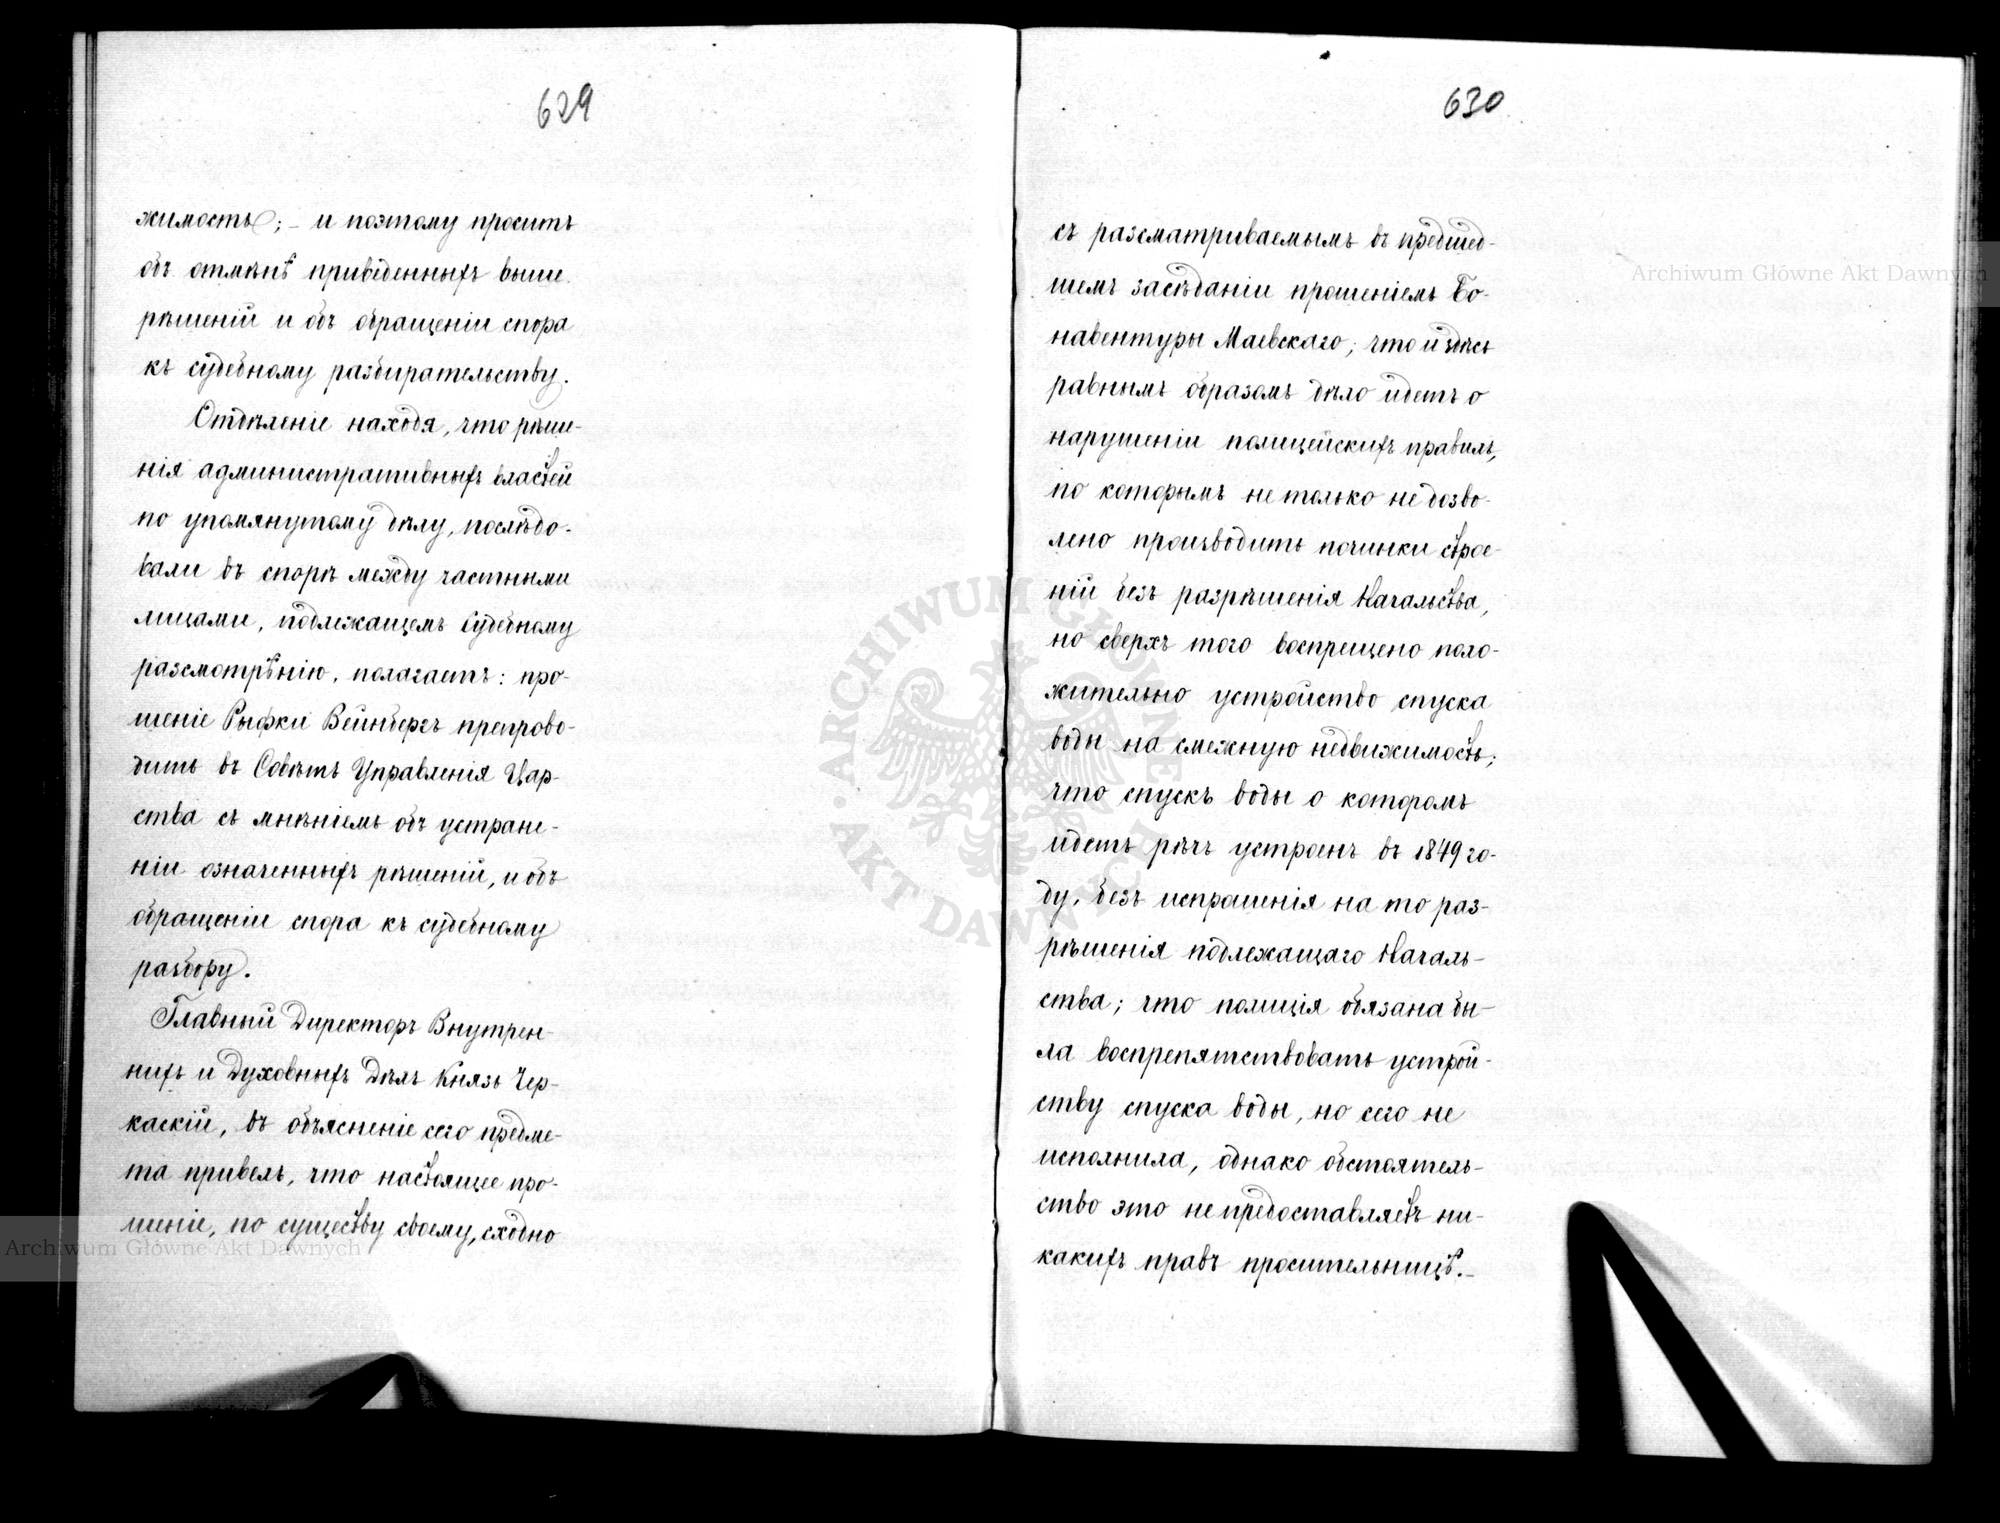 629
жимость; – и поэтому проситъ
объ отмѣнѣ приведенныхъ выше
рѣшеній и объ обращеніи спора
къ судебному разбирательству.
Отдѣленіе находя, что рѣше-
нія административныхъ властей
по упомянутому дѣлу, послѣдо-
вали въ спорѣ между частными
лицами, подлежащемъ судебному
разсмотрѣнію, полагаетъ: про-
шеніе Рыфки Вейнбергъ препрово-
дить въ Совѣтъ Управленія Цар-
ства съ мнѣніемъ объ устране-
ніи означенныхъ рѣшеній, и объ
обращеніи спора къ судебному
разбору.
Главный Директоръ Внутрен-
нихъ и Духовныхъ Дѣлъ Князь Чер-
каскій, въ объясненіе сего предме-
та привелъ, что настоящее про-
шеніе, по существу своему, сходно
630
съ разсматриваемымъ въ предшед-
шемъ засѣданіи прошеніемъ Бо-
навентуры Маевскаго; что и здѣсь
равнымъ образомъ дѣло идетъ о
нарушеніи полицейскихъ правилъ,
по которымъ не только не дозво-
лено производить починки строе-
ній безъ разрѣшенія Начальства,
но сверхъ того воспрещено поло-
жительно устройство спуска
воды на смежную недвижимость;
что спускъ воды о которомъ
идетъ рѣчь устроенъ въ 1849 го-
ду, безъ испрошенія на то раз-
рѣшенія подлежащаго Началь-
ства; что полиція обязана бы-
ла воспрепятствовать устрой-
ству спуска воды, но сего не
исполнила, однако обстоятель-
ство это не предоставляетъ ни-
какихъ правъ просительницѣ. –
Archiwum Główne Akt Dawnych
Archiwum Główne Akt Dawnych
ARCHIWUM GŁÓWNE AKT DAWNYCH